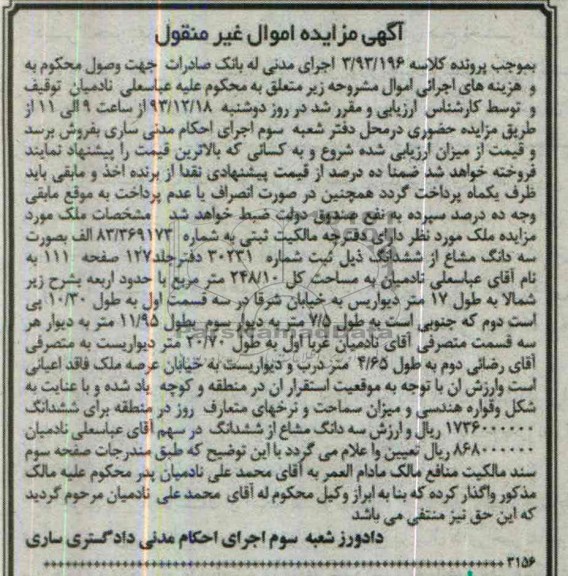 آگهی مزایده اموال غیر منقول
بموجب پرونده کلاسه ۳/۹۳/۱۹۶ اجرای مدنی له بانک صادرات جهت وصول محکوم به
و هزینه های اجرائی اموال مشروحه زیر متعلق به محکوم علیه عباسعلی نادمیان توقیف
و توسط کارشناس ارزیابی و مقرر شد در روز دوشنبه ۹۳/۱۲/۱۸ از ساعت ۹ الی ۱۱ از
طریق مزایده حضوری درمحل دفتر شعبه سوم اجرای احکام مدنی ساری بفروش برسد
و قیمت از میزان ارزیابی شده شروع و به کسانی که بالاترین قیمت را پیشنهاد نمایند
فروخته خواهد شد ضمنا ده درصد از قیمت پیشنهادی نقدا از برنده اخذ و مابقی باید
ظرف یکماه پرداخت گردد همچنین در صورت انصراف یا عدم پرداخت به موقع مابقی
وجه ده درصد سپرده به نفع صندوق دولت ضبط خواهد شد مشخصات ملک مورد
مزایده ملک مورد نظر دارای دفترچه مالکیت ثبتی به شماره ۸۳/۳۶۹۱۷۳ الف بصورت
سه دانگ مشاع از ششدانگ ذیل ثبت شماره ۳۰۲۳۱ دفترجلد۱۲۷ صفحه ۱۱۱ به
نام آقای عباسعلی نادمیان به مساحت کل ۲۴۸/۱۰ متر مربع با حدود اربعه بشرح زیر
شمالا به طول ۱۷ متر دیواریس به خیابان شرقا در سه قسمت اول به طول ۱۰/۳۰ پی
است دوم که جنوبی است به طول ۷/۵ متر به دیوار سوم بطول ۱۱/۹۵ متر به دیوار هر
سه قسمت متصرفی آقای نادمیان غربا اول به طول ۲۰/۷۰ متر دیواریست به متصرفی
آقای رضائی دوم به طول ۴/۶۵ متر درب و دیواریست به خیابان عرصه ملک فاقد اعیانی
است وارزش ان با توجه به موقعیت استقرار ان در منطقه و کوچه یاد شده و با عنایت به
شکل وقواره هندسی و میزان سماحت و نرخهای متعارف روز در منطقه برای ششدانگ
۱۷۳۶۰۰۰۰۰۰ ریال و ارزش سه دانگ مشاع از ششدانگ در سهم آقای عباسعلی نادمیان
۸۶۸۰۰۰۰۰۰ ریال تعیین وا علام می گردد با این توضیح که طبق مندرجات صفحه سوم
سند مالکیت منافع مالک مادام العمر به آقای محمد علی نادمیان پدر محکوم علیه مالک
مذکور واگذار کرده که بنا به ابراز وکیل محکوم له آقای محمد علی نادمیان مرحوم گردید
که این حق نیز منتفی می باشد
دادورز شعبه سوم اجرای احکام مدنی دادگستری ساری
۳۱۵۶